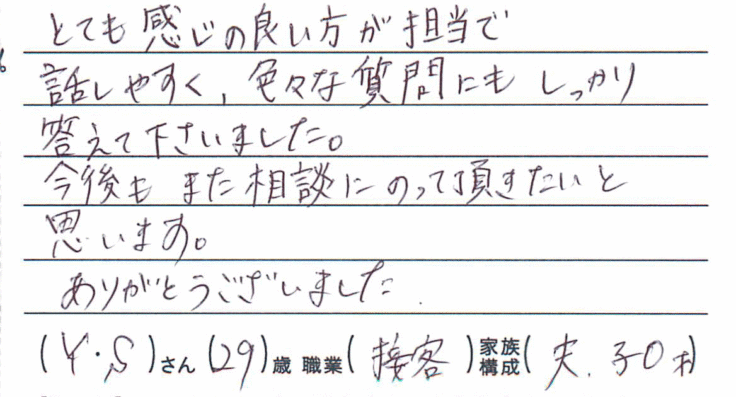 とても感じの良い方が担当で
話しやすく、色々な質問にもしっかり
答えて下さいました。
今後もまた相談にのって頂きたいと
思います。
ありがとうございました.
(Y・S)さん(29)歳 職業(接客)家族構成(夫、子0才)